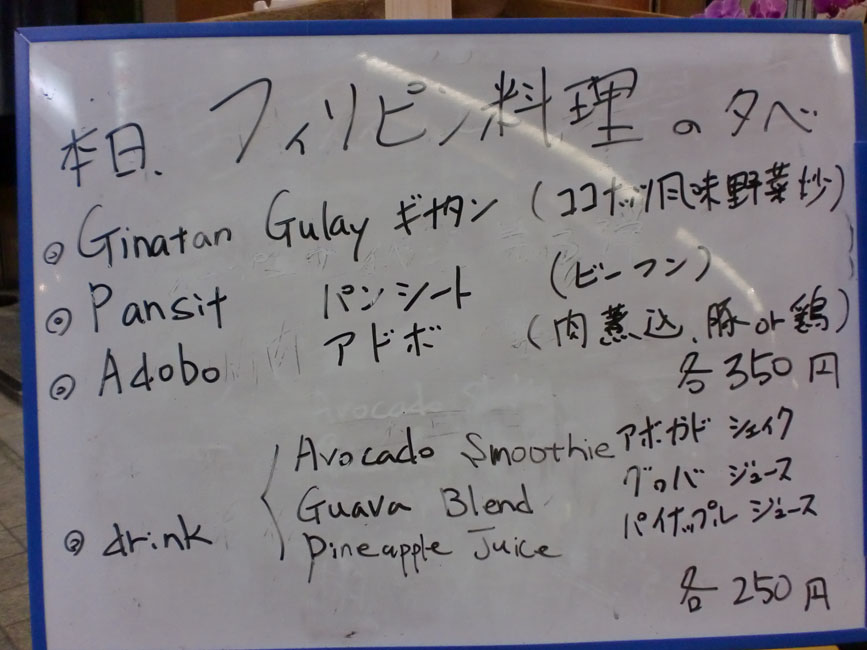 本日、フィリピン料理の夕べ
◎ Ginatan Gulay ギナタン (ココナッツ風味野菜炒)
◎ Pansit パンシート (ビーフン)
◎ Adobo アドボ (肉煮込、豚or鶏)
各350円
Avocado Smoothie アボガド シェイク
Guava Blend グァバ ジュース
◎ drink Pineapple Juice パイナップル ジュース
各250円